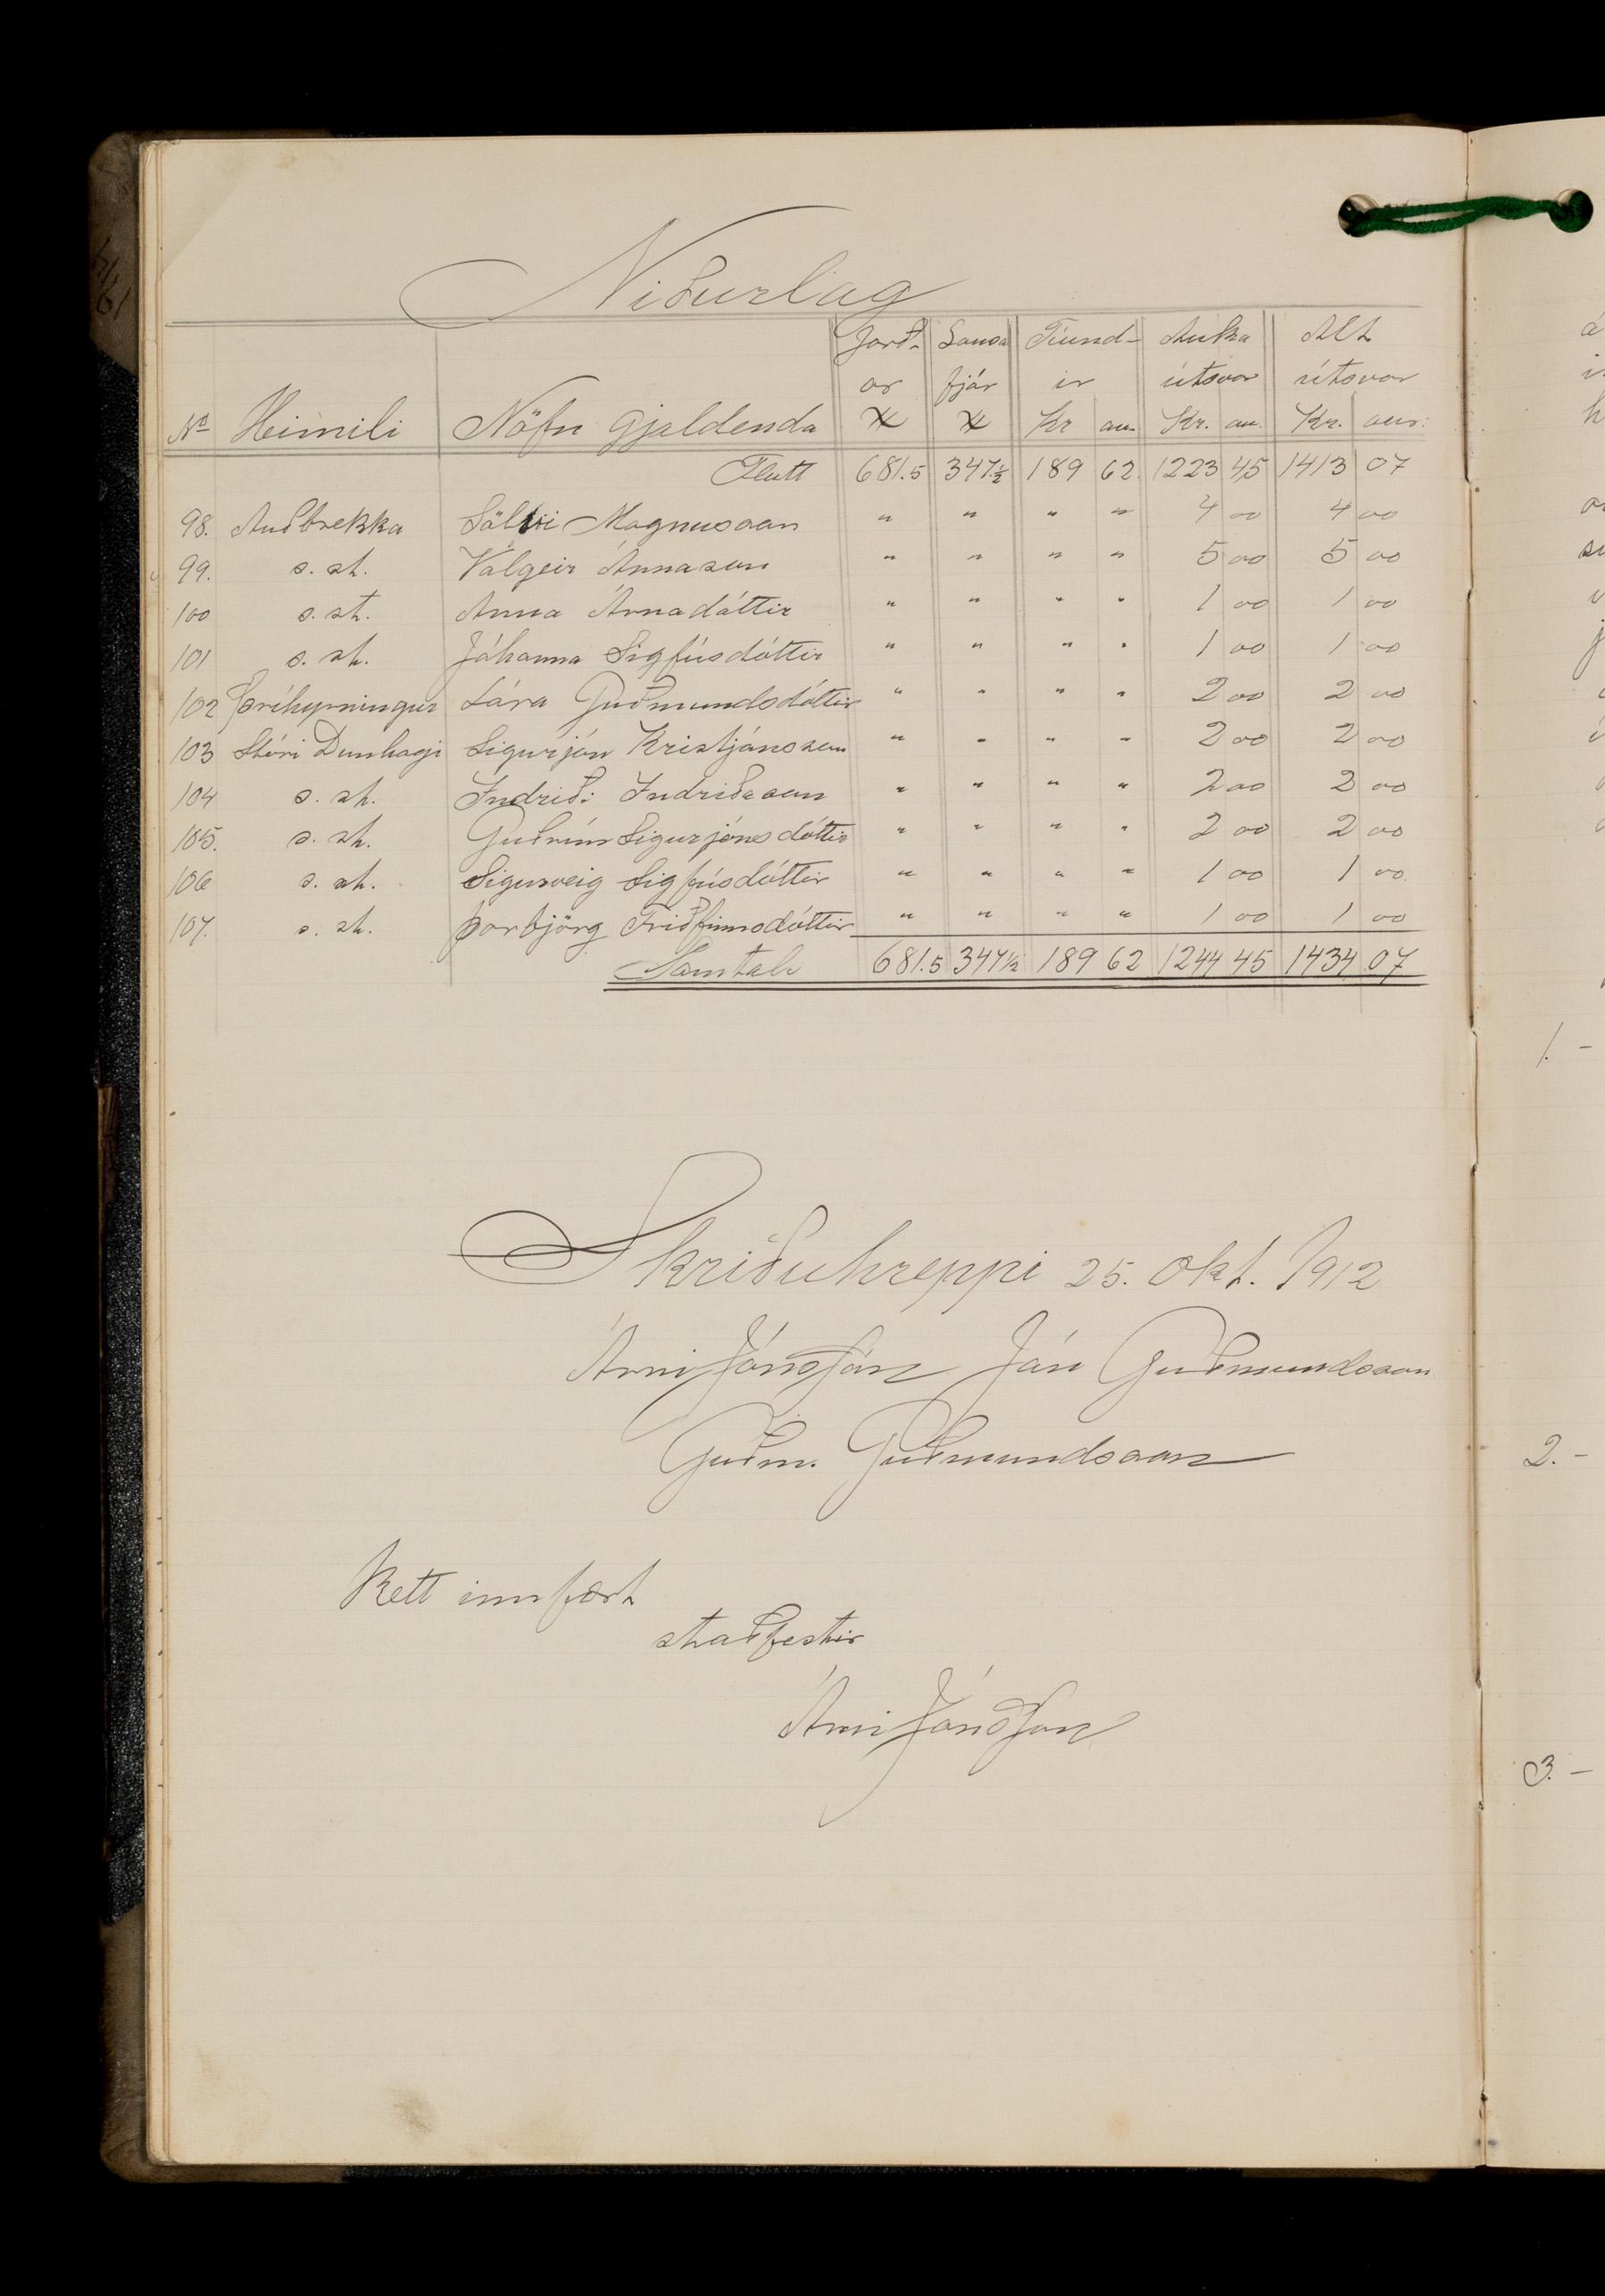 Niðurlag
Jarð- Lausa Tíund- Auka Alt
ar fjár ir útsvar útsvar
No Heimili Nöfn gjaldenda Kr au. Kr. au. Kr. aur.
Flutt 681.5 347½ 189 62 1223 45 1413 07
98. Auðbrekka Sölvi Magnússon " " " " 4 00 4 00
99. s. st. Valgeir Árnason " " " " 5 00 5 00
100 s. st. Anna Árnadóttir " " " " 1 00 1 00
101 s. st. Jóhanna Sigfúsdóttir " " " " 1 00 1 00
102 Þríhyrningur Lára Guðmundsdóttir " " " " 2 00 2 00
103 Stóri Dunhagi Sigurjón Kristjánsson " " " " 2 00 2 00
104 s. st. Indriði Indriðason " " " " 2 00 2 00
105. s. st. Guðrún Sigurjónsdóttir " " " " 2 00 2 00
106 s. st. Sigurveig Sigfúsdóttir " " " " 1 00 1 00
107. s. st. Þorbjörg Friðfinnsdóttir " " " " 1 00 1 00
Samtals 681.5 347½ 189 62 1244 45 1434 07
Skriðuhreppi 25. okt. 1912
Árni Jónsson Jón Guðmundsson
Guðm. Guðmundsson
Rétt innfært
staðfestir
Árni Jónsson
1. -
2. -
3. -